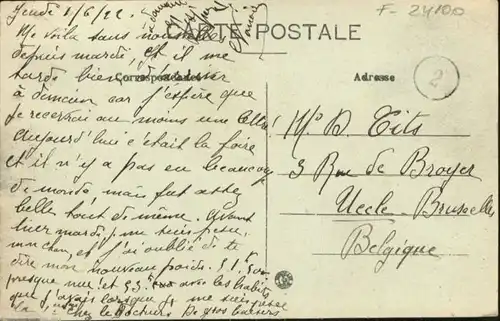 Jeudi 1/6/22.
F-24100
CARTE POSTALE
Me voilà sans nouvelles
depuis mardi, et il me
tarde bien d'arriver
Correspondance
Adresse
2
à demain car j'espère que
je recevrai au moins une lettre!
Aujourd'hui c'était la foire
et il n'y a pas eu beaucoup
de monde mais fut assez
belle tout de même. Avant
hier mardi, je me suis pesée
mon cher, et j'ai oublié de te
dire mon nouveau poids. 51
presque nue et 53 avec les habits
que j'avais lorsque je me suis pesée
la chez le Docteur. De gros baisers
Mr D. Tits
3 Rue de Broyer
Uccle-Bruxelles
Belgique